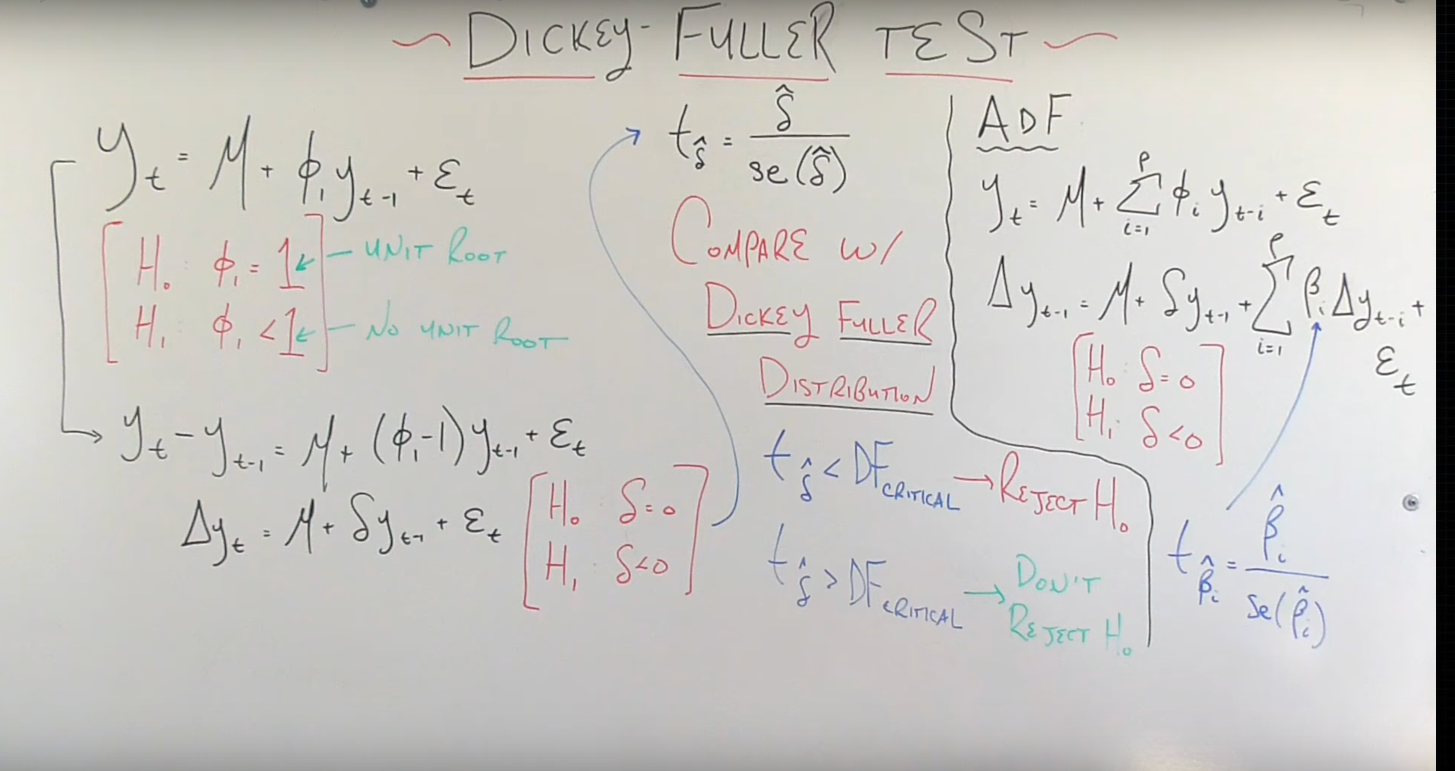 ~ DICKEY-FULLER TEST ~
y_t = μ + ϕ_1 y_{t-1} + ε_t
[H_0: ϕ_1 = 1] ← UNIT ROOT
[H_1: ϕ_1 < 1] ← NO UNIT ROOT
y_t - y_{t-1} = μ + (ϕ_1 - 1) y_{t-1} + ε_t
Δy_t = μ + δy_{t-1} + ε_t
H_0: δ = 0
H_1: δ < 0
t_δ̂ = δ̂ / se(δ̂)
COMPARE W/
DICKEY FULLER
DISTRIBUTION
t_δ̂ < DF_CRITICAL → REJECT H_0
t_δ̂ > DF_CRITICAL → DON'T
REJECT H_0
ADF
y_t = μ + Σ_{i=1}^{p} ϕ_i y_{t-i} + ε_t
Δy_{t-1} = μ + δy_{t-1} + Σ_{i=1}^{p} β_i Δy_{t-i} +
ε_t
H_0: δ = 0
H_1: δ < 0
t_β̂_i = β̂_i / se(β̂_i)